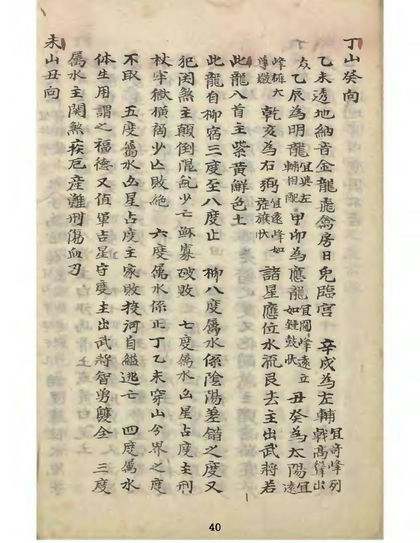 丁山癸向
乙未透地納音金龍纏禽房日兔臨宮 辛戌為左輔 宜奇峰列戟高聳出
乙辰為明龍 宜與左輔相配 甲卯為應龍 宜圓峰遠立如鐘鼓狀 丑癸為太陽 宜遠
峰礴大尊嚴 乾亥為右弼 宜遠峰如旌旗狀 諸星應位水流艮去主出武將若
此龍入首主紫黃鮮色土
此龍自柳宿三度至八度止 柳八度屬水係陰陽差錯之度又
犯因煞主顛倒混亂少亡孤寡破敗 七度屬水凶星占度主刑
杖牢獄橫禍少亡敗絕 六度屬水係正丁乙未穿山分界之度
不取 五度屬水凶星占度主家敗投河自縊逃亡 四度屬水
体生用謂之福德又值軍吉星守度主出武將智勇雙全 三度
屬水主関煞疾厄産難刑傷血刃
未山丑向
40